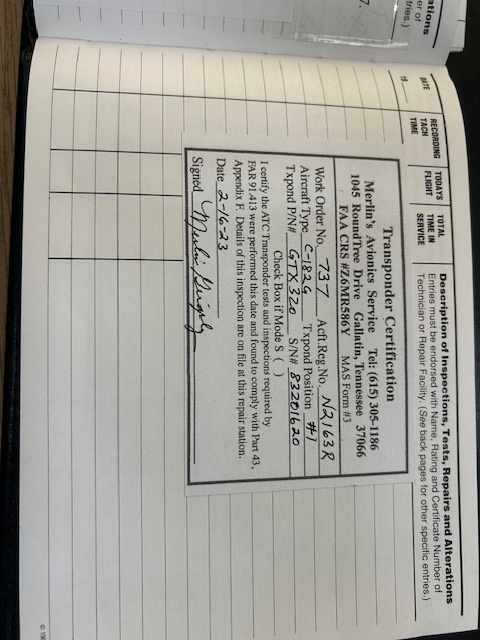 ations
er of
tries.)
7.
DATE
19
RECORDING TACH TIME
TODAY'S FLIGHT
TOTAL TIME IN SERVICE
Description of Inspections, Tests, Repairs and Alterations
Entries must be endorsed with Name, Rating and Certificate Number of
Technician or Repair Facility. (See back pages for other specific entries.)
Transponder Certification
Merlin's Avionics Service Tel: (615) 305-1186
1045 RoundTree Drive Gallatin, Tennessee 37066
FAA CRS #Z6MR586Y MAS Form #3
Work Order No. 737 Acft.Reg.No. N2163R
Aircraft Type C-182G Txpond Position #1
Txpond P/N# GTX 320 S/N# 83201620
Check Box if Mode S ( )
I certify the ATC Transponder tests and inspections required by
FAR 91.413 were performed this date and found to comply with Part 43,
Appendix F. Details of this inspection are on file at this repair station.
Date 2-16-23
Signed
© 19